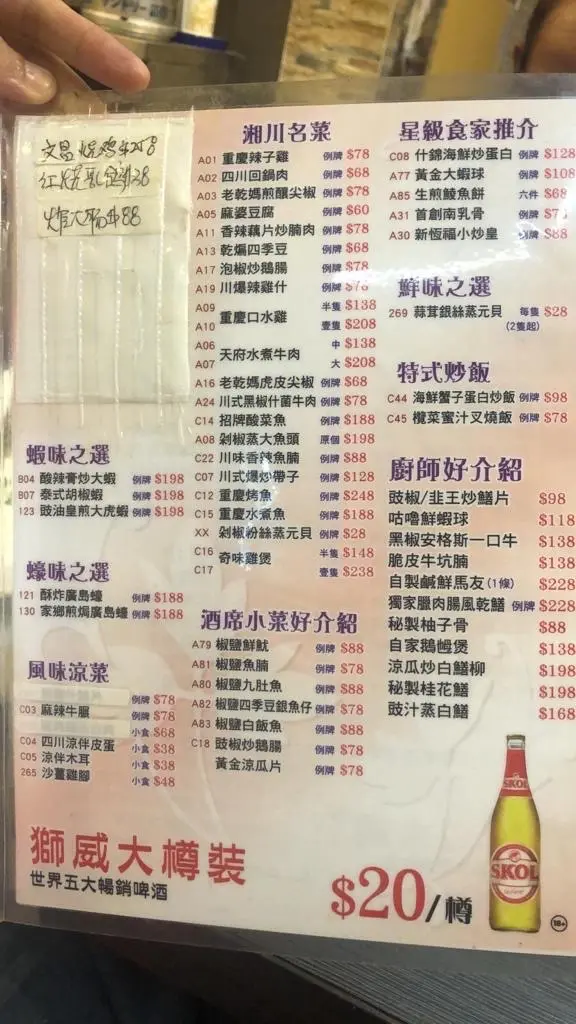 文昌
$258
紅燒乳
$88
湘川名菜
A01 重慶辣子雞 例牌 $78
A02 四川回鍋肉 例牌 $68
A03 老乾媽煎釀尖椒 例牌 $78
A05 麻婆豆腐 例牌 $60
A11 香辣藕片炒腩肉 例牌 $78
A13 乾煸四季豆 例牌 $68
A17 泡椒炒鵝腸 例牌 $78
A19 川爆辣雞什 例牌 $78
A09 重慶口水雞 半隻 $138
A10 壹隻 $208
A06 天府水煮牛肉 中 $138
A07 大 $208
A16 老乾媽虎皮尖椒 例牌 $68
A24 川式黑椒什菌牛肉 例牌 $78
C14 招牌酸菜魚 例牌 $188
A08 剁椒蒸大魚頭 原個 $198
C22 川味香辣魚腩 例牌 $88
C07 川式爆炒帶子 例牌 $128
C12 重慶烤魚 例牌 $248
C15 重慶水煮魚 例牌 $188
XX 剁椒粉絲蒸元貝 例牌 $28
C16 奇味雞煲 半隻 $148
C17 壹隻 $238
酒席小菜好介紹
A79 椒鹽鮮魷 例牌 $88
A81 椒鹽魚腩 例牌 $78
A80 椒鹽九肚魚 例牌 $88
A82 椒鹽四季豆銀魚仔 例牌 $78
A83 椒鹽白飯魚 例牌 $88
C18 豉椒炒鵝腸 例牌 $78
黃金涼瓜片 例牌 $78
蝦味之選
B04 酸辣膏炒大蝦 例牌 $198
B07 泰式胡椒蝦 例牌 $198
123 豉油皇煎大虎蝦 例牌 $198
蠔味之選
121 酥炸廣島蠔 例牌 $188
130 家鄉煎焗廣島蠔 例牌 $188
風味涼菜
例牌 $78
C03 麻辣牛𦟌 例牌 $78
小食 $68
C04 四川涼伴皮蛋 小食 $38
C05 涼伴木耳 小食 $38
265 沙薑雞腳 小食 $48
星級食家推介
C08 什錦海鮮炒蛋白 例牌 $128
A77 黃金大蝦球 例牌 $108
A85 生煎鯪魚餅 六件 $68
A31 首創南乳骨 例牌
A30 新恆福小炒皇 例牌 $88
鮮味之選
269 蒜茸銀絲蒸元貝 每隻 $28
(2隻起)
特式炒飯
C44 海鮮蟹子蛋白炒飯 例牌 $98
C45 欖菜蜜汁叉燒飯 例牌 $78
廚師好介紹
豉椒/韭王炒鱔片 $98
咕嚕鮮蝦球 $118
黑椒安格斯一口牛 $138
脆皮牛坑腩 $138
自製鹹鮮馬友(1條) $228
獨家臘肉腸風乾鱔 例牌 $228
秘製柚子骨 $88
自家鵝乸煲 $138
涼瓜炒白鱔柳 $198
秘製桂花鱔 $198
豉汁蒸白鱔 $168
獅威大樽裝
世界五大暢銷啤酒
$20/樽
SKOL
SKOL
18+